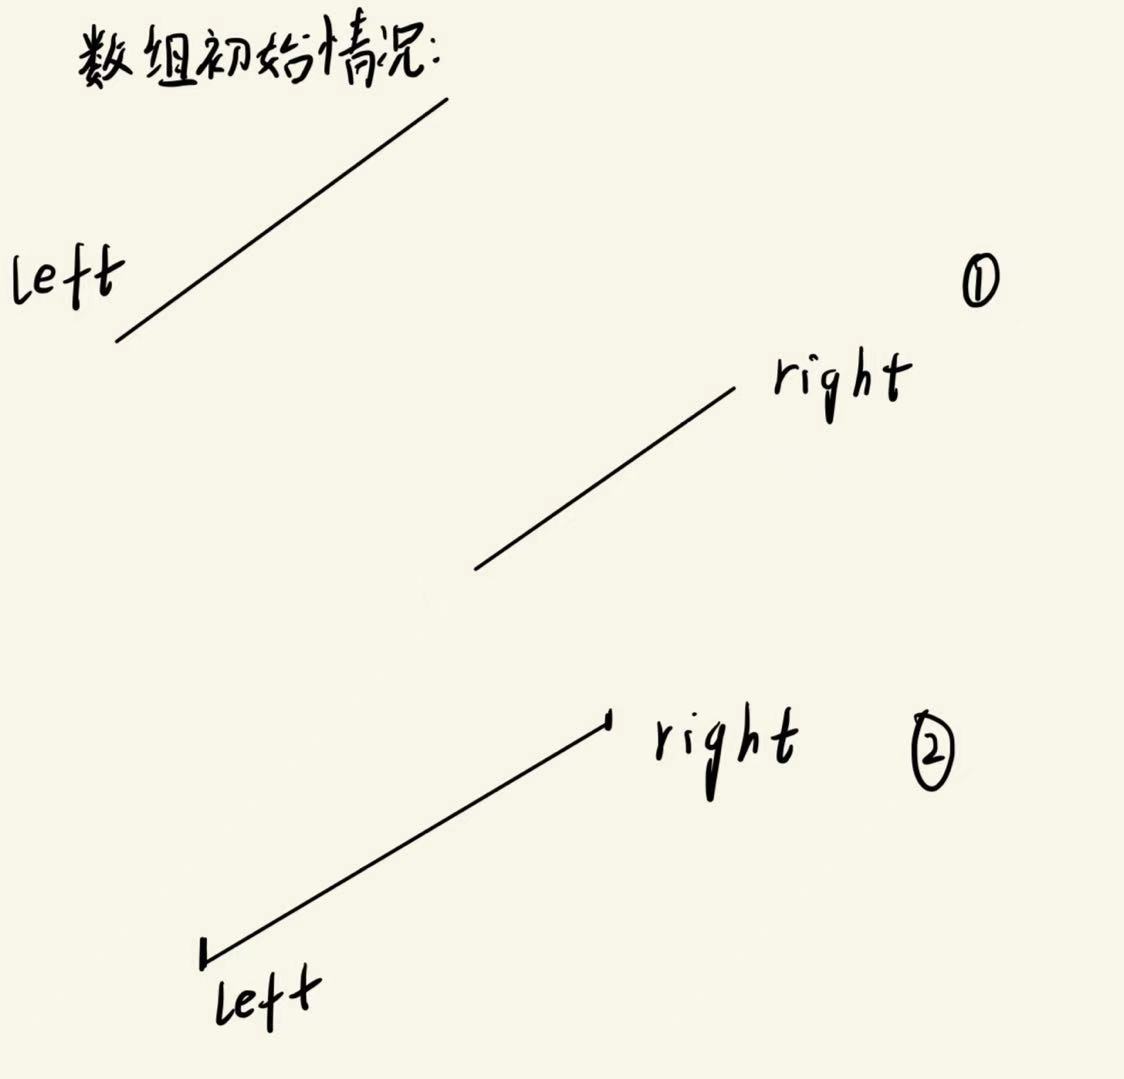 数组初始情况:
left
①
right
right ②
left